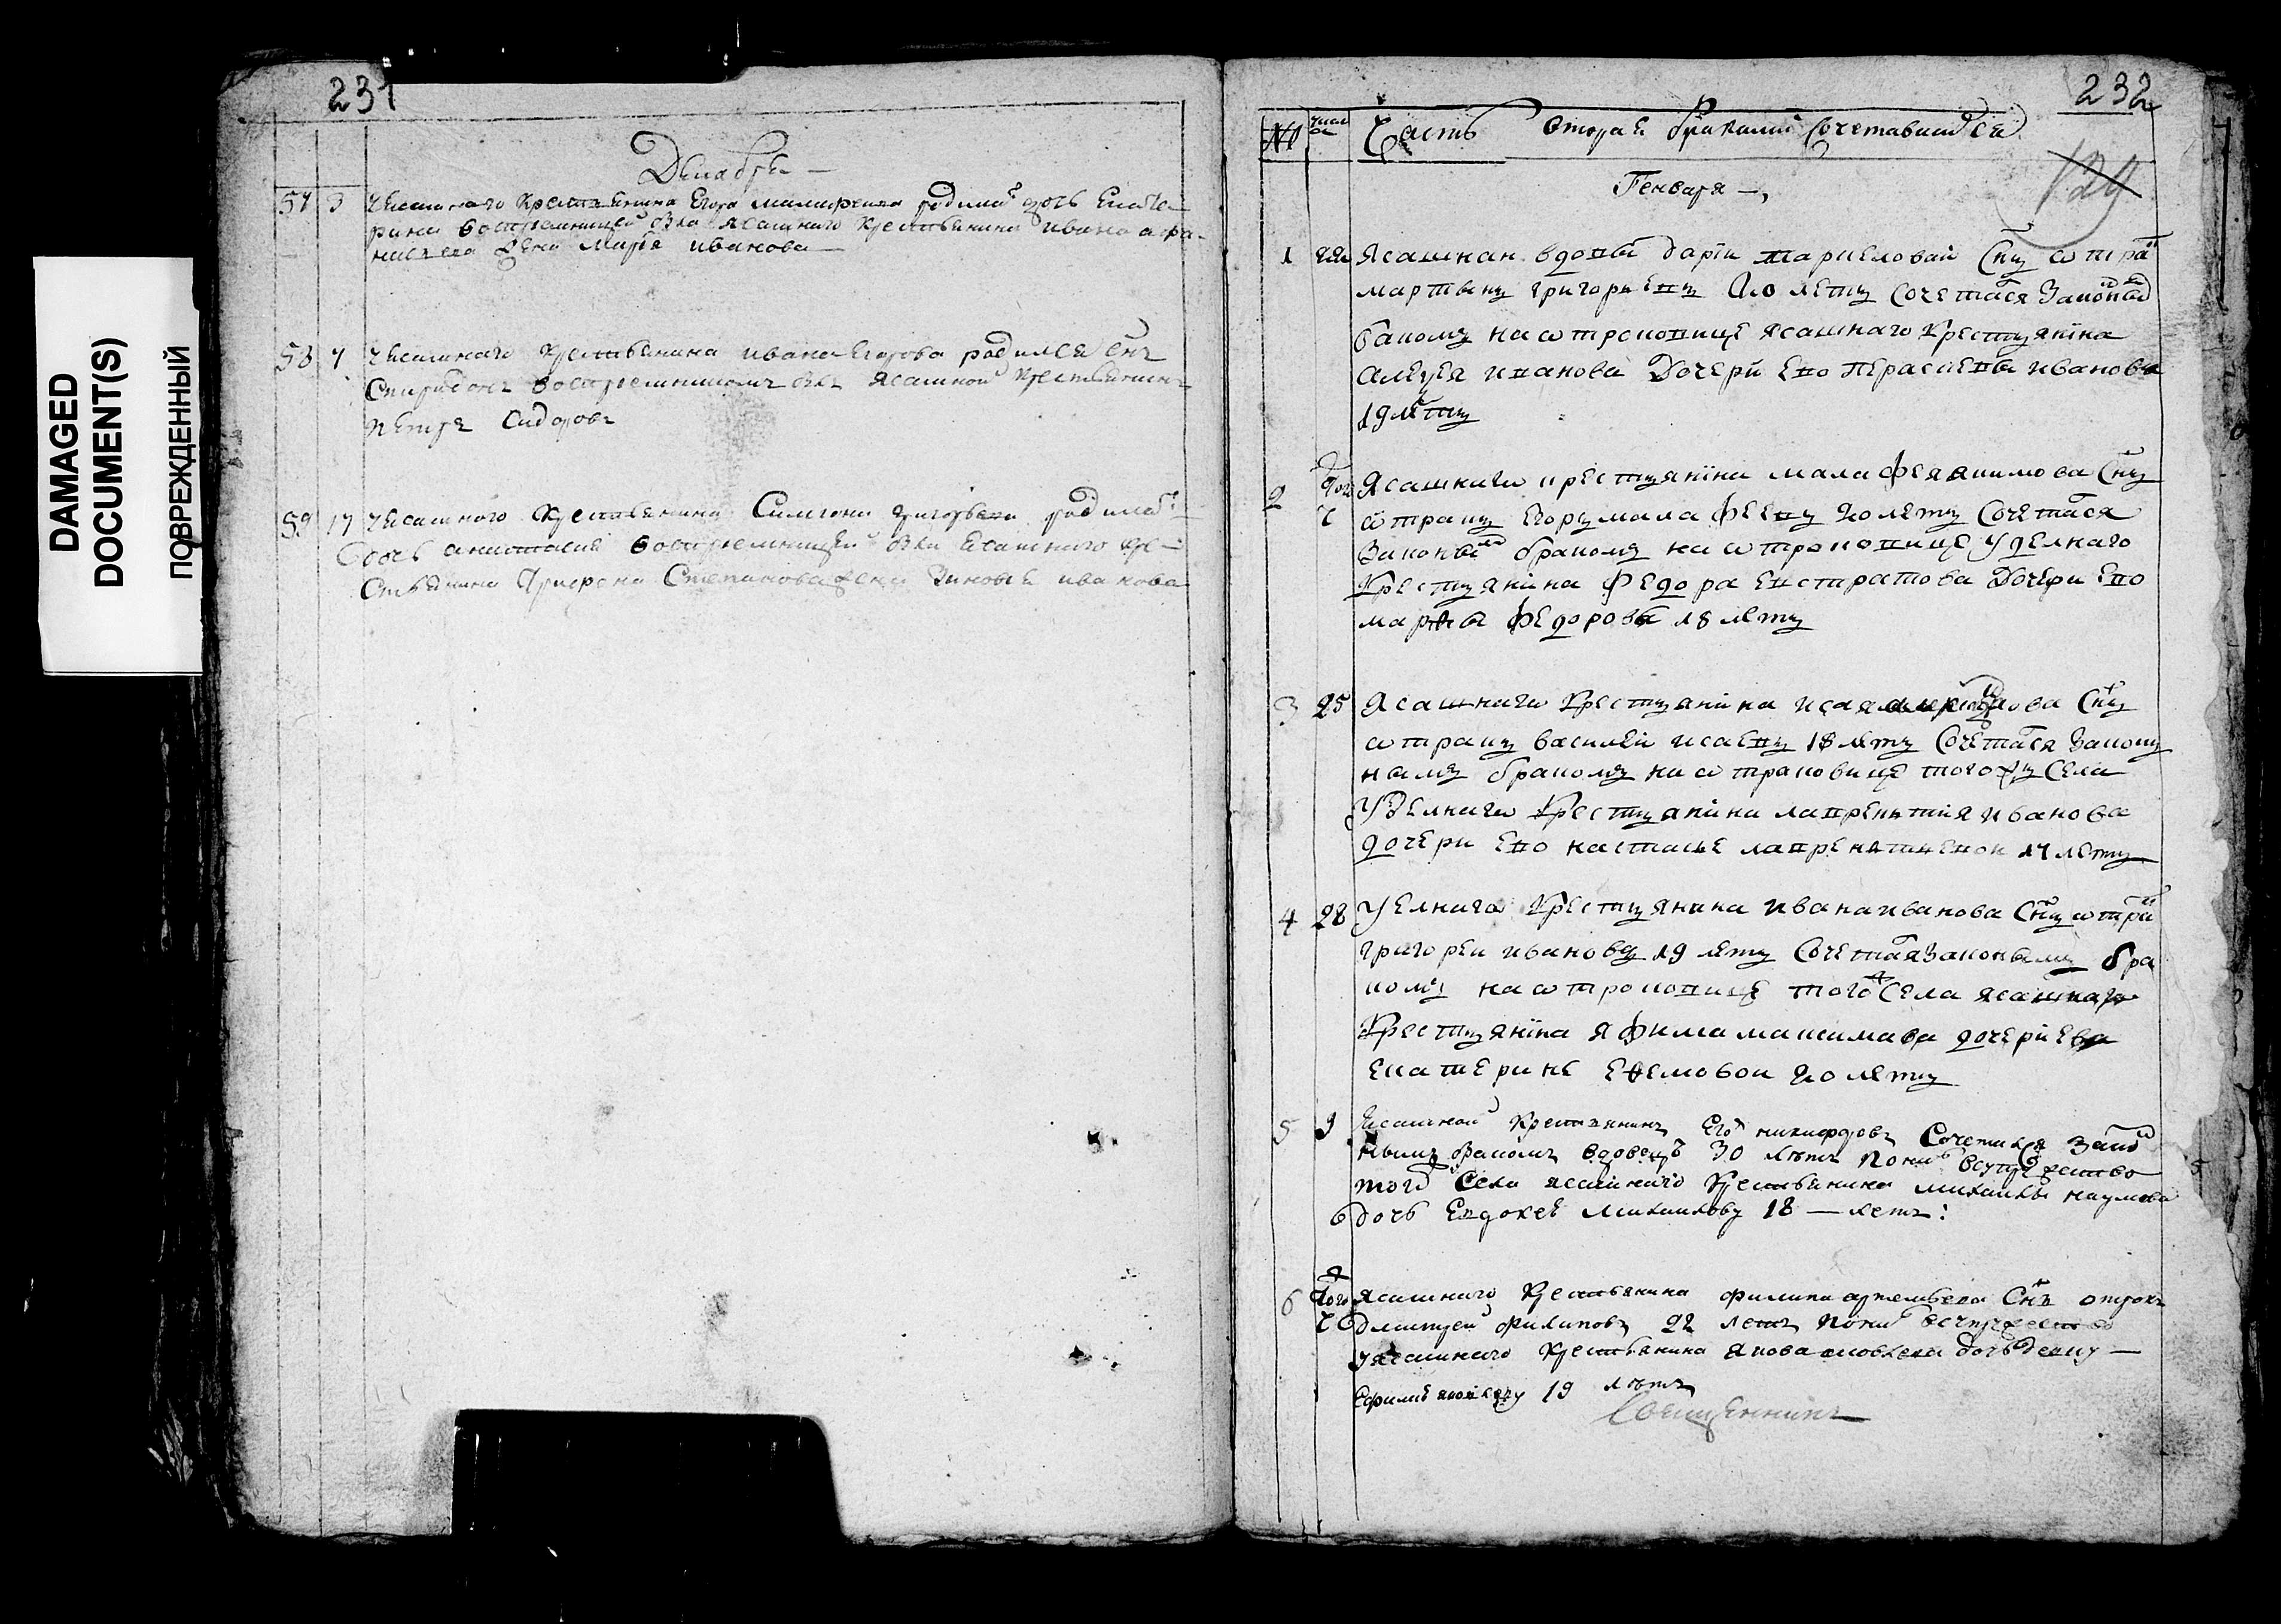 DAMAGED
DOCUMENT(S)
ПОВРЕЖДЕННЫЙ
231
Декабрь
57 3 Уясашнаго крестьянина Егора родилась дочь Екате-
рина восприемницей была ясашнаго крестьянина ивана афа-
жена Марья иванова
58 7 Уясашнаго крестьянина ивана Егорова родился снъ
Спиридонъ восприемникомъ былъ ясашной крестьянинъ
петръ Сидоровъ
59 17 Уясашного крестьянина Симиона григорьева родилась
дочь анастасия восприемницей была ясашного кре-
стьянина Степанова жена Зиновья иванова
232
№ число Часть вторая бракомъ сочетавшихся
129
Генваря
1 Ясашнай вдовы дарьи снъ отракъ
мартынъ григорьевъ 20 летъ сочетался законымъ
бракомъ на отроковице ясашнаго крестъянина
алеѯея иванова дочери ево парасковьи ивановы
19 летъ
2 того ч Ясашнаго крестъянина малафея акимова снъ
отракъ Егоръ малафеевъ 20 летъ сочетался
законымъ бракомъ на отроковице уделнаго
крестъянина Федора Евстратова дочери Ево
марьи Федоровы 18 летъ
3 25 Ясашнаго крестъянина исая снъ
отракъ василей исаевъ 18 летъ сочетался законы
намъ бракомъ на отраковице тогожъ села
уделнаго крестъянина лаврентия иванова
дочери ево настасье лаврентиевой 17 летъ
4 28 Уелнага крестъянина ивана иванова снъ отракъ
григореи ивановъ 19 летъ сочетася законымъ бра
комъ на отроковице тогожъ села ясашнаго
крестъянина яфима максимава дочери ева
Екатерине Ефемовои 20 летъ
5 9 Ясашной крестьянинъ Егоръ никифоровъ сочетался зако
нымъ бракомъ вдовецъ 30 летъ понявъ всупружество
того села ясашнаго крестьянина михаилы наумова
дочь Евдокею михаилову 18 — летъ:
6 того ч Ясашнаго крестьянина филипа артемьева снъ отрокъ
дмитрей филиповъ 22 летъ понявъ всупружество
уясашнаго крестьянина якова дочь девку —
Ефимью яковлеву 19 летъ
Священникъ